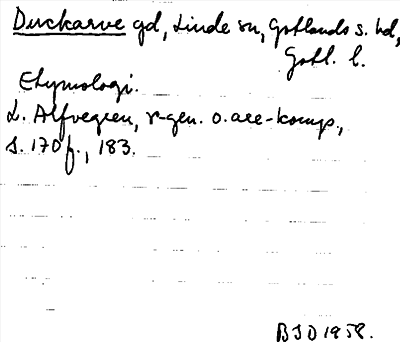 Duckarve gd, Linde sn, Gotlands s. hd,
Gotl. l.
Etymologi.
L. Alfvegren, r-gen. o. are-komp,
s. 170 f., 183.
BJO 1958.